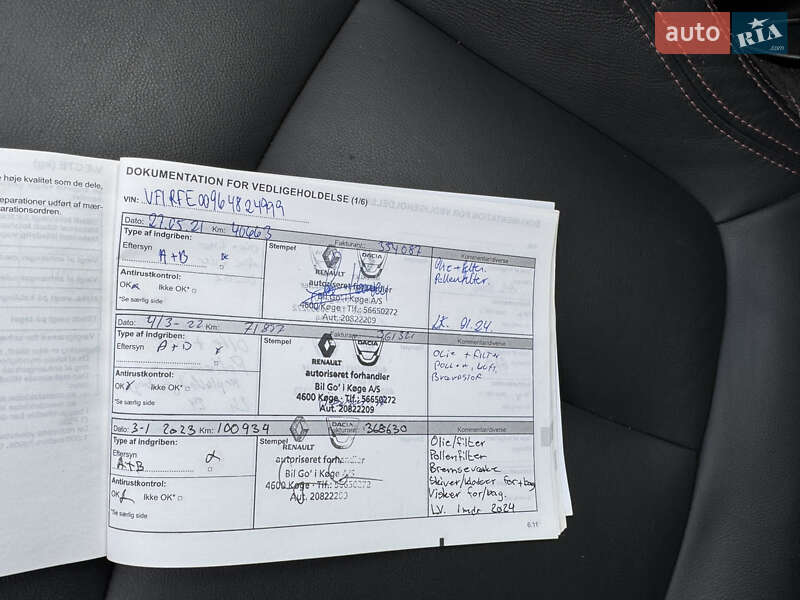 auto RIA.com
høje kvalitet som de dele,
eparationer udført af mær-
arationsordren.
DOKUMENTATION FOR VEDLIGEHOLDELSE (1/6)
VIN: VF1RFE00964824999
Dato: 27.05.21 Km: 40663
Fakturanr.: 354087
Type af indgriben:
Stempel
Kommentar/diverse
Eftersyn A+B
RENAULT DACIA
Olie+filter.
Pollenfilter.
Antirustkontrol:
autoriseret forhandler
OK Ikke OK*
Bil Go' i Køge A/S
*Se særlig side
4600 Køge - Tlf.: 56650272
Aut. 20822209
LV. 01.24.
Dato: 4/3-22 Km: 71857
Fakturanr.: 361321
Type af indgriben:
Stempel
Kommentar/diverse
Eftersyn
RENAULT
Olie + filter
Antirustkontrol:
autoriseret forhandler
OK Ikke OK*
Bil Go' i Køge A/S
4600 Køge - Tlf.: 56650272
*Se særlig side
Aut. 20822209
Dato: 3-1 2023 Km: 100934
Fakturanr.: 368630
Type af indgriben:
Stempel
Kommentar/diverse
Eftersyn
A+B
RENAULT DACIA
Olie/filter
Pollenfilter
Antirustkontrol:
autoriseret forhandler
Bremsevæske
OK Ikke OK*
Bil Go' i Køge A/S
Skiver/klodser for+bag
4600 Køge - Tlf.: 56650272
Visker for/bag.
*Se særlig side
Aut. 20822209
LV. 1 mdr 2024
6.11